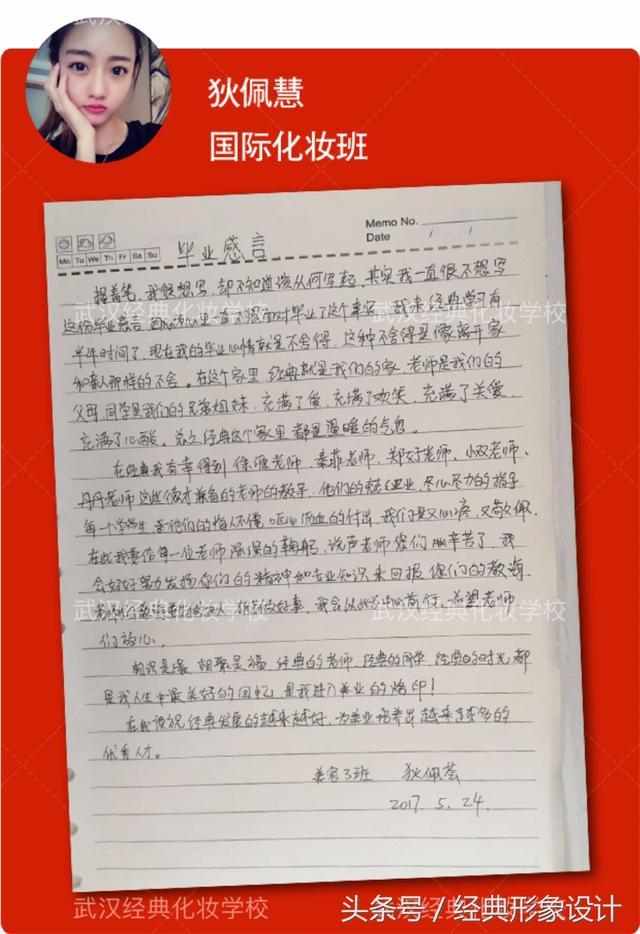 武汉经典化妆学校
武汉经典化妆学校
狄佩慧
国际化妆班
Memo No.
Date / /
Mo Tu We Th Fr Sa Su
毕业感言
提着笔,我很想写,却不知道该从何写起,其实我一直很不想写
这份毕业感言,因为内心里 面对毕业了这个事实,我来经典学习有
半年时间了,现在我的毕业心情就是不舍得,这种不舍得是像离开家
和亲人那样的不舍。在这个家里,经典就是我们的家,老师是我们的
父母,同学是我们的兄弟姐妹,充满了爱,充满了欢笑,充满了关爱,
充满了心酸。总之经典这个家里都是温暖的气息。
在经典我有幸得到徐 老师、秦菲老师、郑好老师、小双老师、
丹丹老师这些德才兼备的老师的教导,他们的敬业,尽心尽力的指导
每一个学生,老师们的诲人不倦,呕心沥血的付出,我们是又心疼,又敬佩。
在此我要给每一位老师深深的鞠躬,说声老师您们 辛苦了,我
会好好努力发扬您们的精神和专业知识来回报您们的教诲。
我会 前行,希望老师
们放心。
相识是缘,相聚是福,经典的老师,经典的同学,经典的时光都
是我人生中最美好的回忆,是我进入美业的烙印!
在此祝愿经典发展的越来越好,为美业培养出越来越多的
优秀人才。
美容3班 狄佩荟
2017. 5. 24.
武汉经典化妆学校
武汉经典化妆学校
武汉经典化妆学校
武汉经典化妆学校
武汉经典化妆学校
头条号 / 经典形象设计